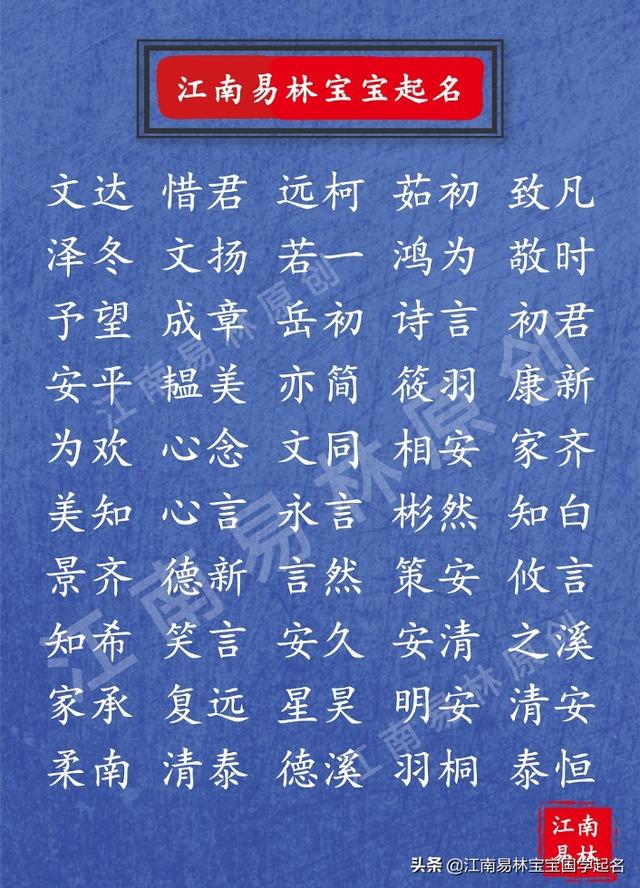 江南易林宝宝起名
文达 惜君 远柯 茹初 致凡
泽冬 文扬 若一 鸿为 敬时
予望 成章 岳初 诗言 初君
安平 韫美 亦简 筱羽 康新
为欢 心念 文同 相安 家齐
美知 心言 永言 彬然 知白
景齐 德新 言然 策安 攸言
知希 笑言 安久 安清 之溪
家承 复远 星昊 明安 清安
柔南 清泰 德溪 羽桐 泰恒
江南易林原创
江南易林原创
江南易林原创
江南
易林
头条 @江南易林宝宝国学起名